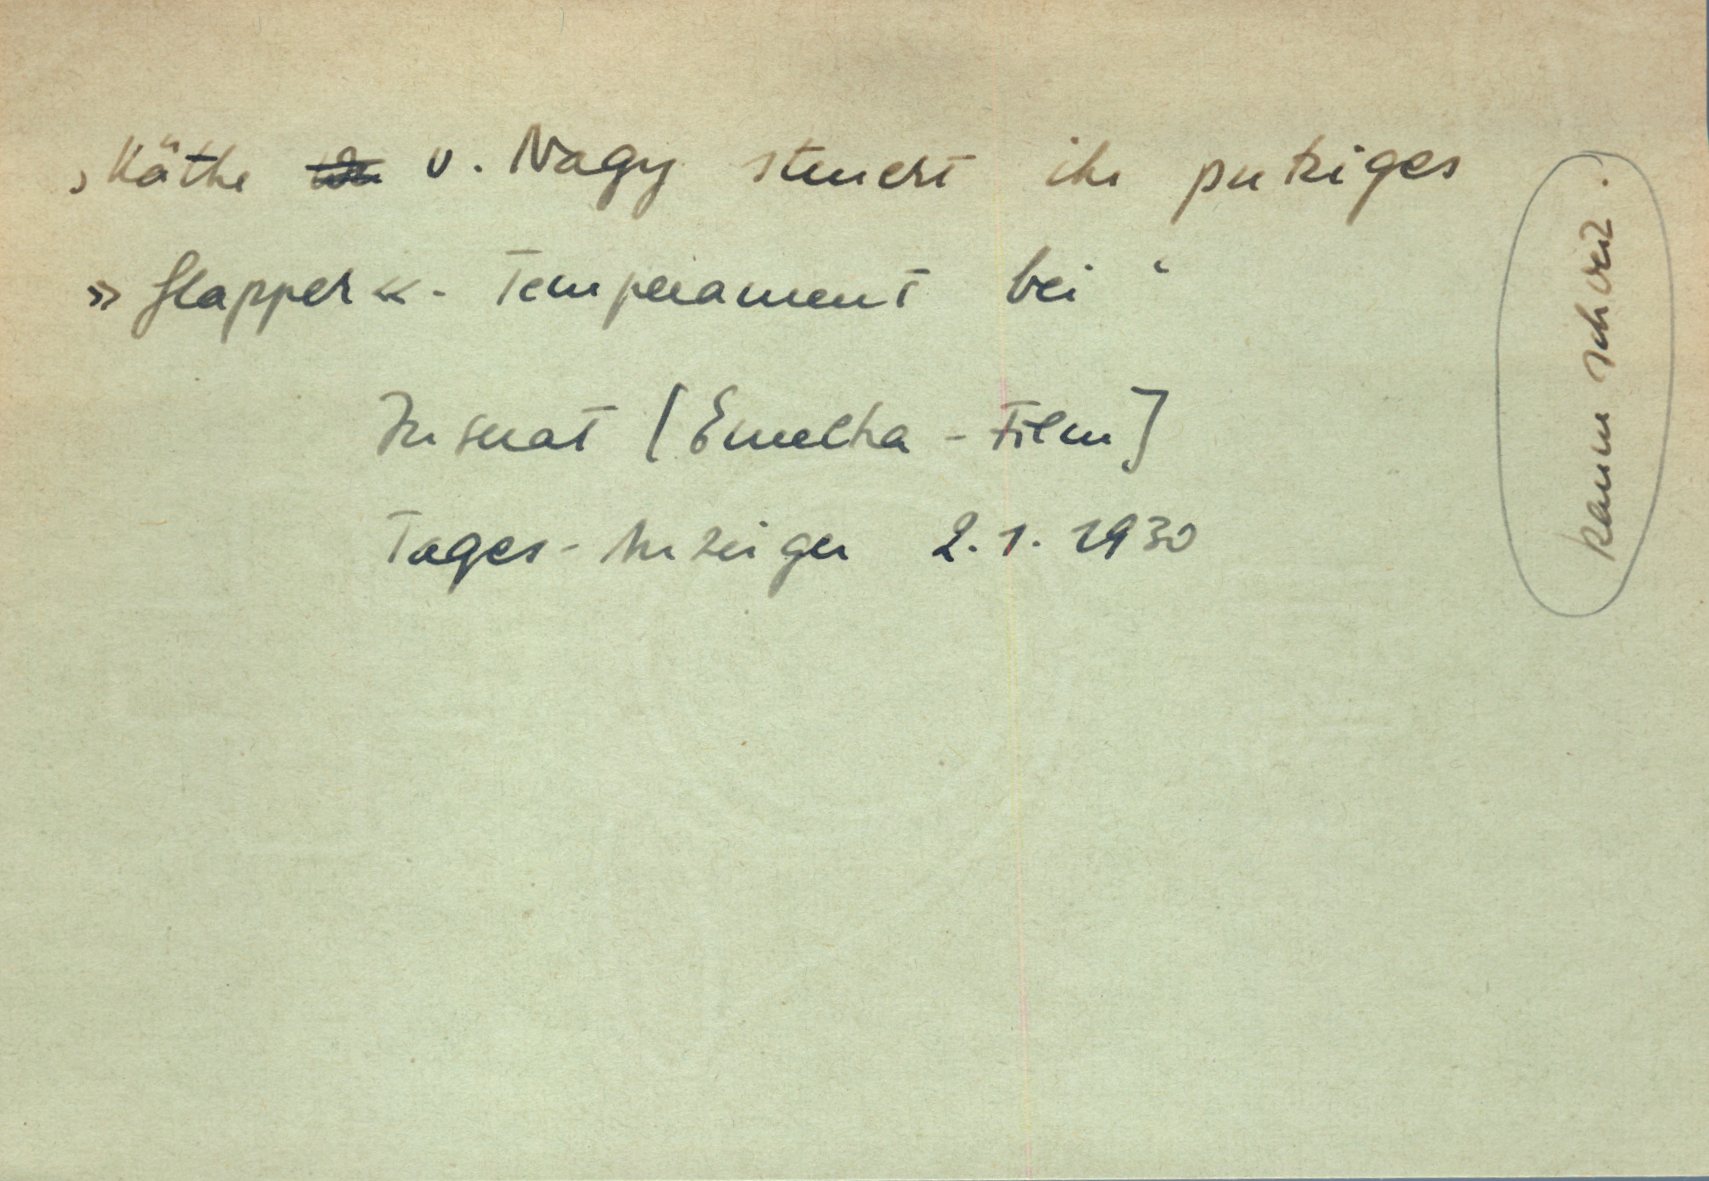 ‚Käthe v. Nagy steuert ihr putziges
»flapper«-Temperament bei‘
Inserat [Emelka-Film]
Tages-Anzeiger 2.1.1930
kaum schweiz.